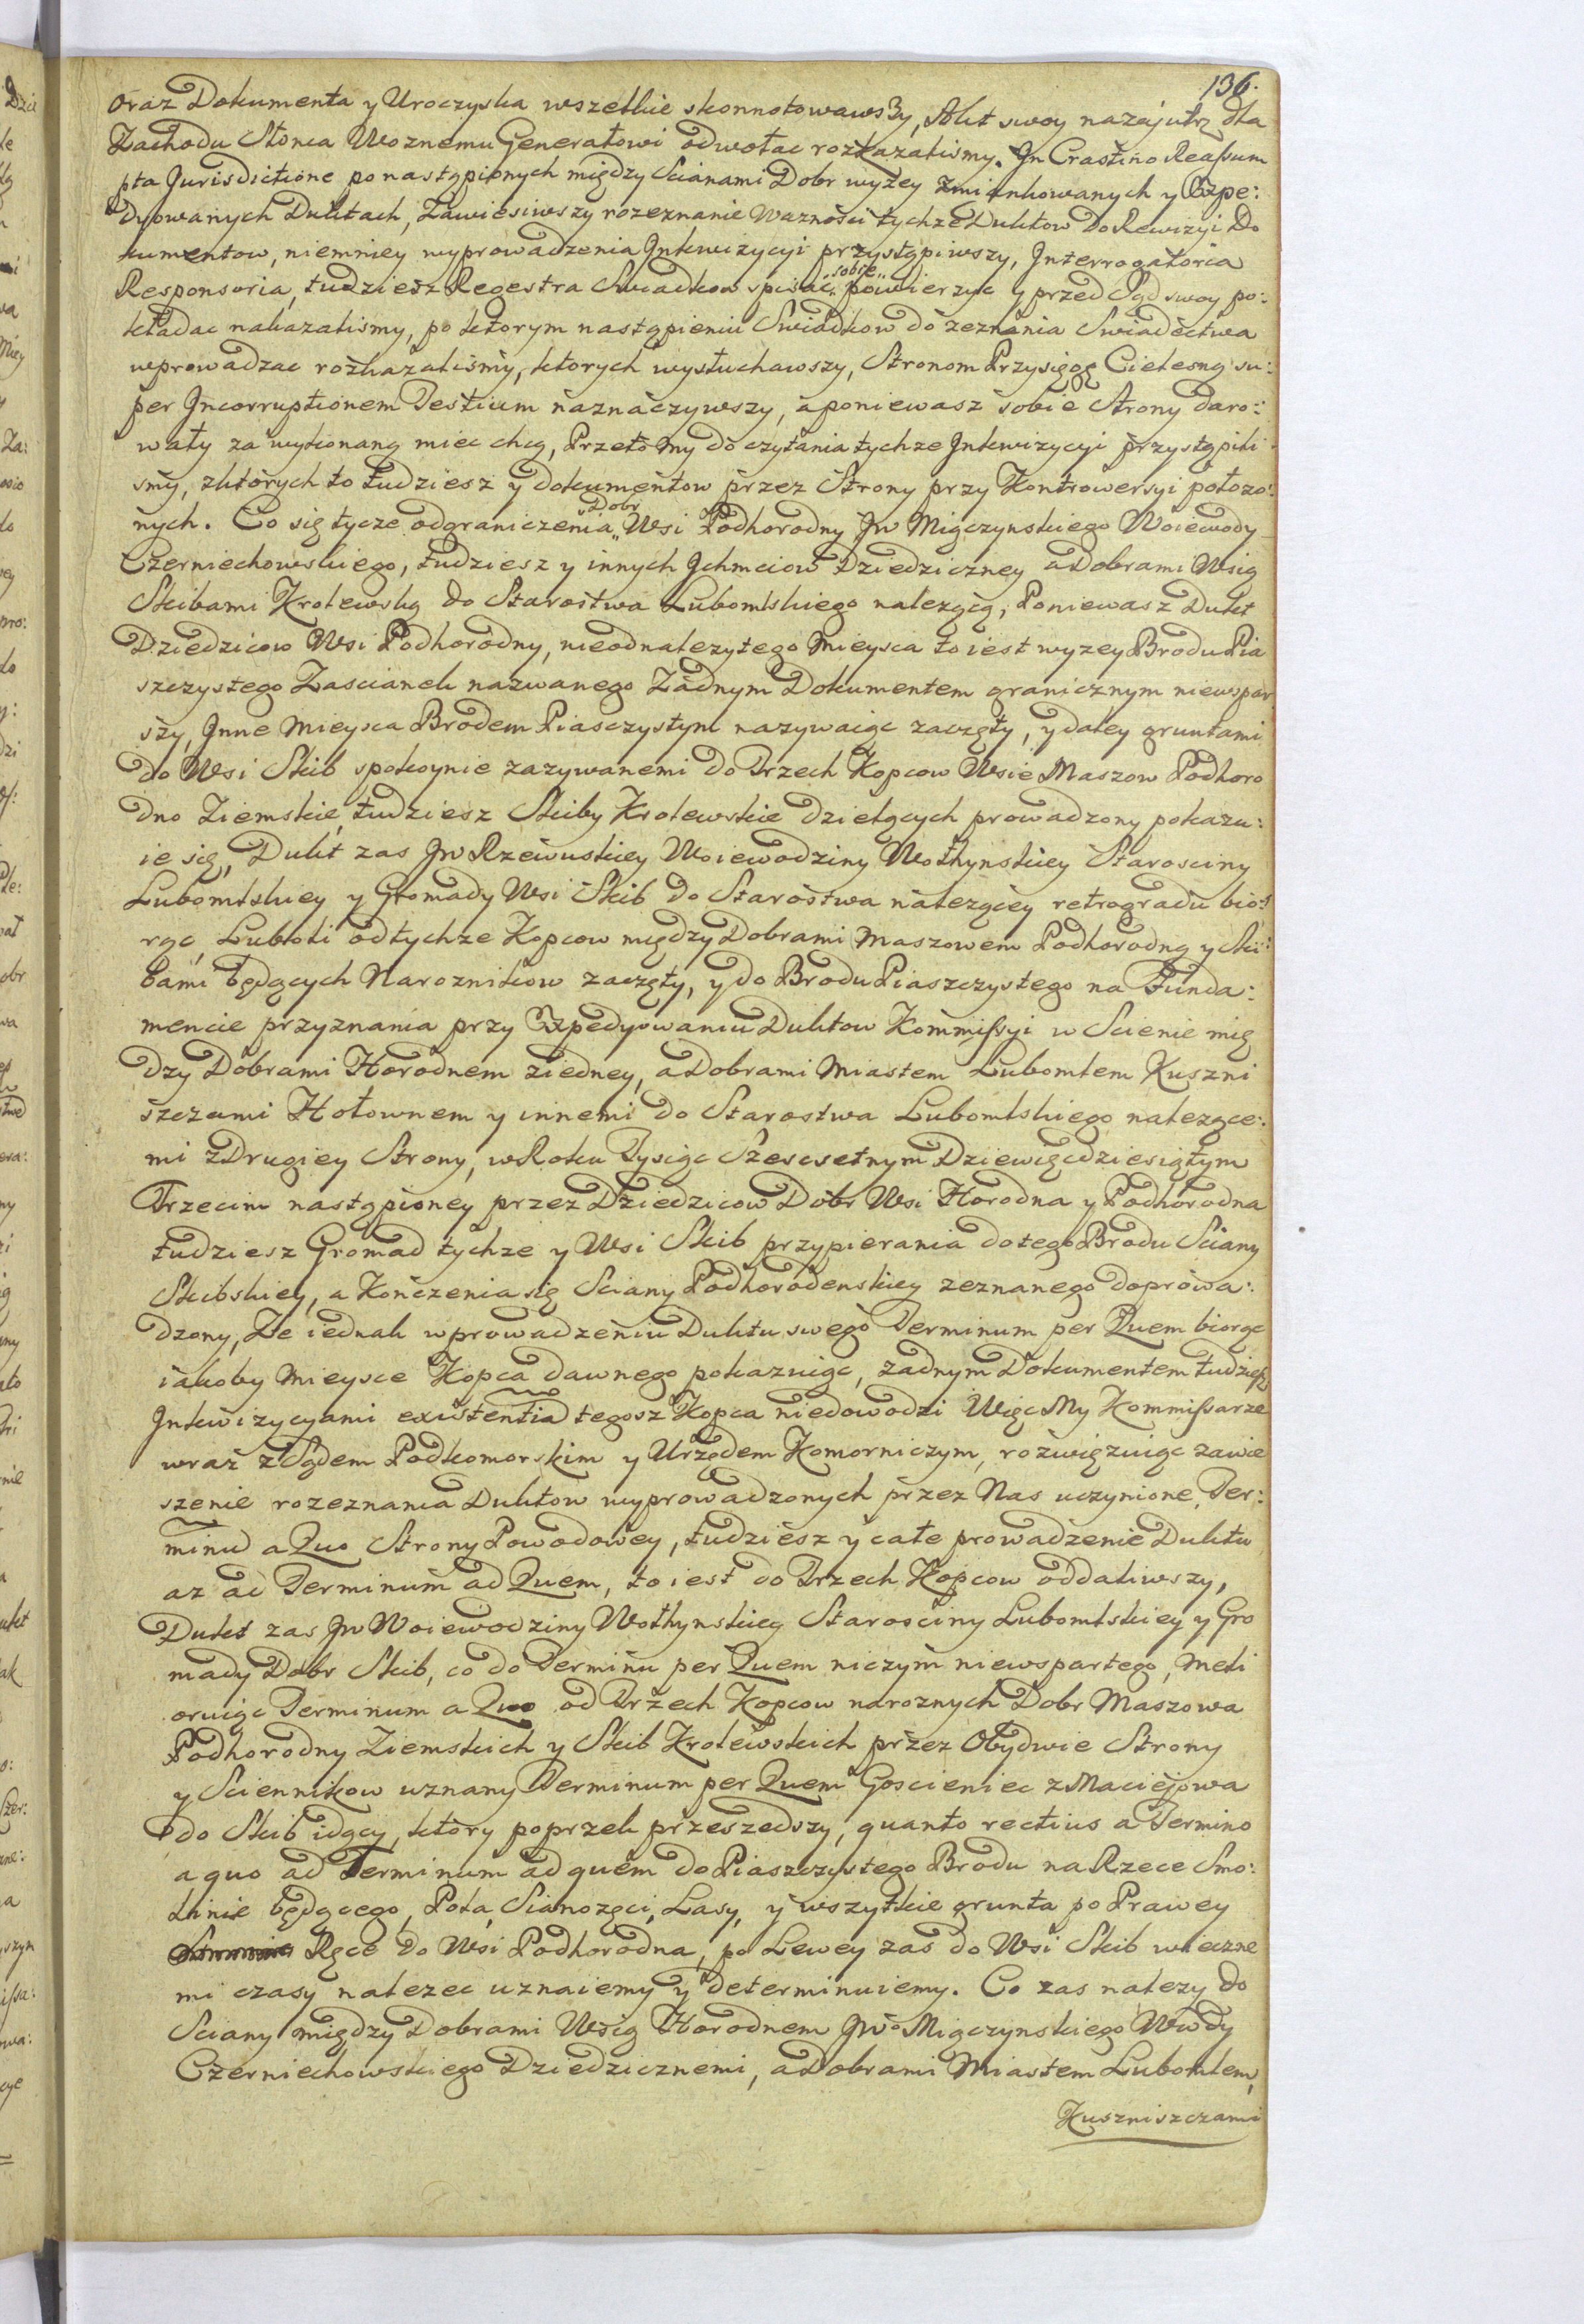 136.
oraz Dokumenta y Uroczyska wszelkie skonnotowawszy, Akt swoy nazajutrz dla
Zachodu Słonca Woznemu Generałowi odwołac rozkazalismy. In Crastino Reassum
pta Jurisdictione po nastąpionych między Scianami Dobr wyżey zmiankowanych y Expe:
dyowanych Duktach, Zawiesiwszy rozeznanie Waznosci tychze Duktow do Rewizyi Do
kumentow, niemniey wyprowadzenia Inkwizycyi przystąpiwszy, Interrogatoria
Responsoria, tudziesz Regestra Swiadkow spisać „sobie„ powierzyc y przed Sąd swoy po:
kładac nakazalismy, po ktorym nastąpieniu Swiadkow do zeznania Swiadectwa
wprowadzac rozkazalismy, ktorych wysłuchawszy, Stronom Przysięgę Cielesną su:
per Incorruptionem Testium naznaczywszy, a poniewasz sobie Strony daro:
wały za wykonaną miec chcą, Przeto My do czytania tychze Inkwizycyi przystąpili
smy, z ktorych to tudziesz y dokumentow przez Strony przy Kontrowersyi połozo:
nych. Co się tycze odgraniczenia „Dobr„ Wsi Podhorodny Jw Miączynskiego Woiewody
Czerniechowskiego, tudziesz y innych Ichmciow Dziedziczney a Dobrami Wsią
Skibami Krolewską do Starostwa Lubomlskiego nalezącą, Poniewasz Dukt
Dziedzicow Wsi Podhorodny, nieodnalezytego Mieysca to iest wyzey Brodu Pia
szczystego Zascianek nazwanego Zadnym Dokumentem granicznym niewspar
szy, Inne Mieysca Brodem Piasczystym nazywaiąc zaczęty, y daley gruntami
do Wsi Skib spokoynie zazywanemi do Trzech Kopcow Wsie Maszow Podhoro
dno Ziemskie, tudziesz Skiby Krolewskie dzielących prowadzony pokazu:
ie się, Dukt zas Jw Rzewuskiey Woiewodziny Wołhynskiey Starosciny
Lubomlskiey y Gromady Wsi Skib do Starostwa nalezącey retrogradu bio:
rąc, Lubo ti od tychze Kopcow między Dobrami Maszowem Podhorodną y Ski:
bami będących Naroznikow zaczęty, y do Brodu Piaszczystego na Funda:
mencie przyznania przy Expedyowaniu Duktow Kommissyi w Scienie mię
dzy Dobrami Horodnem ziedney, a Dobrami Miastem Lubomlem Kuszni
szczami Hołownem y innemi do Starostwa Lubomlskiego nalezące:
mi z Drugiey Strony, w Roku Tysiąc Szescsetnym Dziewięcdziesiątym
Trzecim nastąpioney przez Dziedzicow Dobr Wsi Horodna y Podhorodna
tudziesz Gromad tychze y Wsi Skib przypierania do tego Brodu Sciany
Skibskiey, a Kończenia się Sciany Podhorodenskiey zeznanego doprowa:
dzony, Ze iednak w prowadzeniu Duktu swego Terminum per Quem biorąc
iakoby Mieysce Kopca dawnego pokazuiąc, zadnym Dokumentem tudziesz
Inkwizycyami existentia tegosz Kopca niedowodzi Więc My Kommissarze
wraz z Sądem Podkomorskim y Urzędem Komorniczym, rozwięzuiąc zawie
szenie rozeznania Duktow wyprowadzonych przez Nas uczynione, Ter:
minu a Quo Strony Powodowey, tudziesz y całe prowadzenie Duktu
az ad Terminum ad Quem, to iest do Trzech Kopcow oddaliwszy,
Dukt zas Jw Woiewodziny Wołhynskiey Starosciny Lubomlskiey y Gro
mady Dobr Skib, co do Terminu per Quem niczym niewspartego, Meli
oruiąc Terminum a Quo od Trzech Kopcow naroznych Dobr Maszowa
Podhorodny Ziemskich y Skib Krolewskich przez Obydwie Strony
y Sciennikow uznany Terminum per Quem Goscieniec z Maciejowa
do Skib idący, ktory poprzek przeszedszy, quanto rectius a Termino
a quo ad Terminum ad quem do Piaszczystego Brodu na Rzece Smo:
linie będącego, Pola, Sianozęci, Lasy, y wszytkie grunta po Prawey
Ręce do Wsi Podhorodna, po Lewey zas do Wsi Skib wieczne
mi czasy nalezec uznaiemy y determinuiemy. Co zas nalezy do
Sciany między Dobrami Wsią Horodnem Jwo Miączynskiego Wwdy
Czerniechowskiego Dziedzicznemi, a Dobrami Miastem Lubomlem,
Kuszniszczami